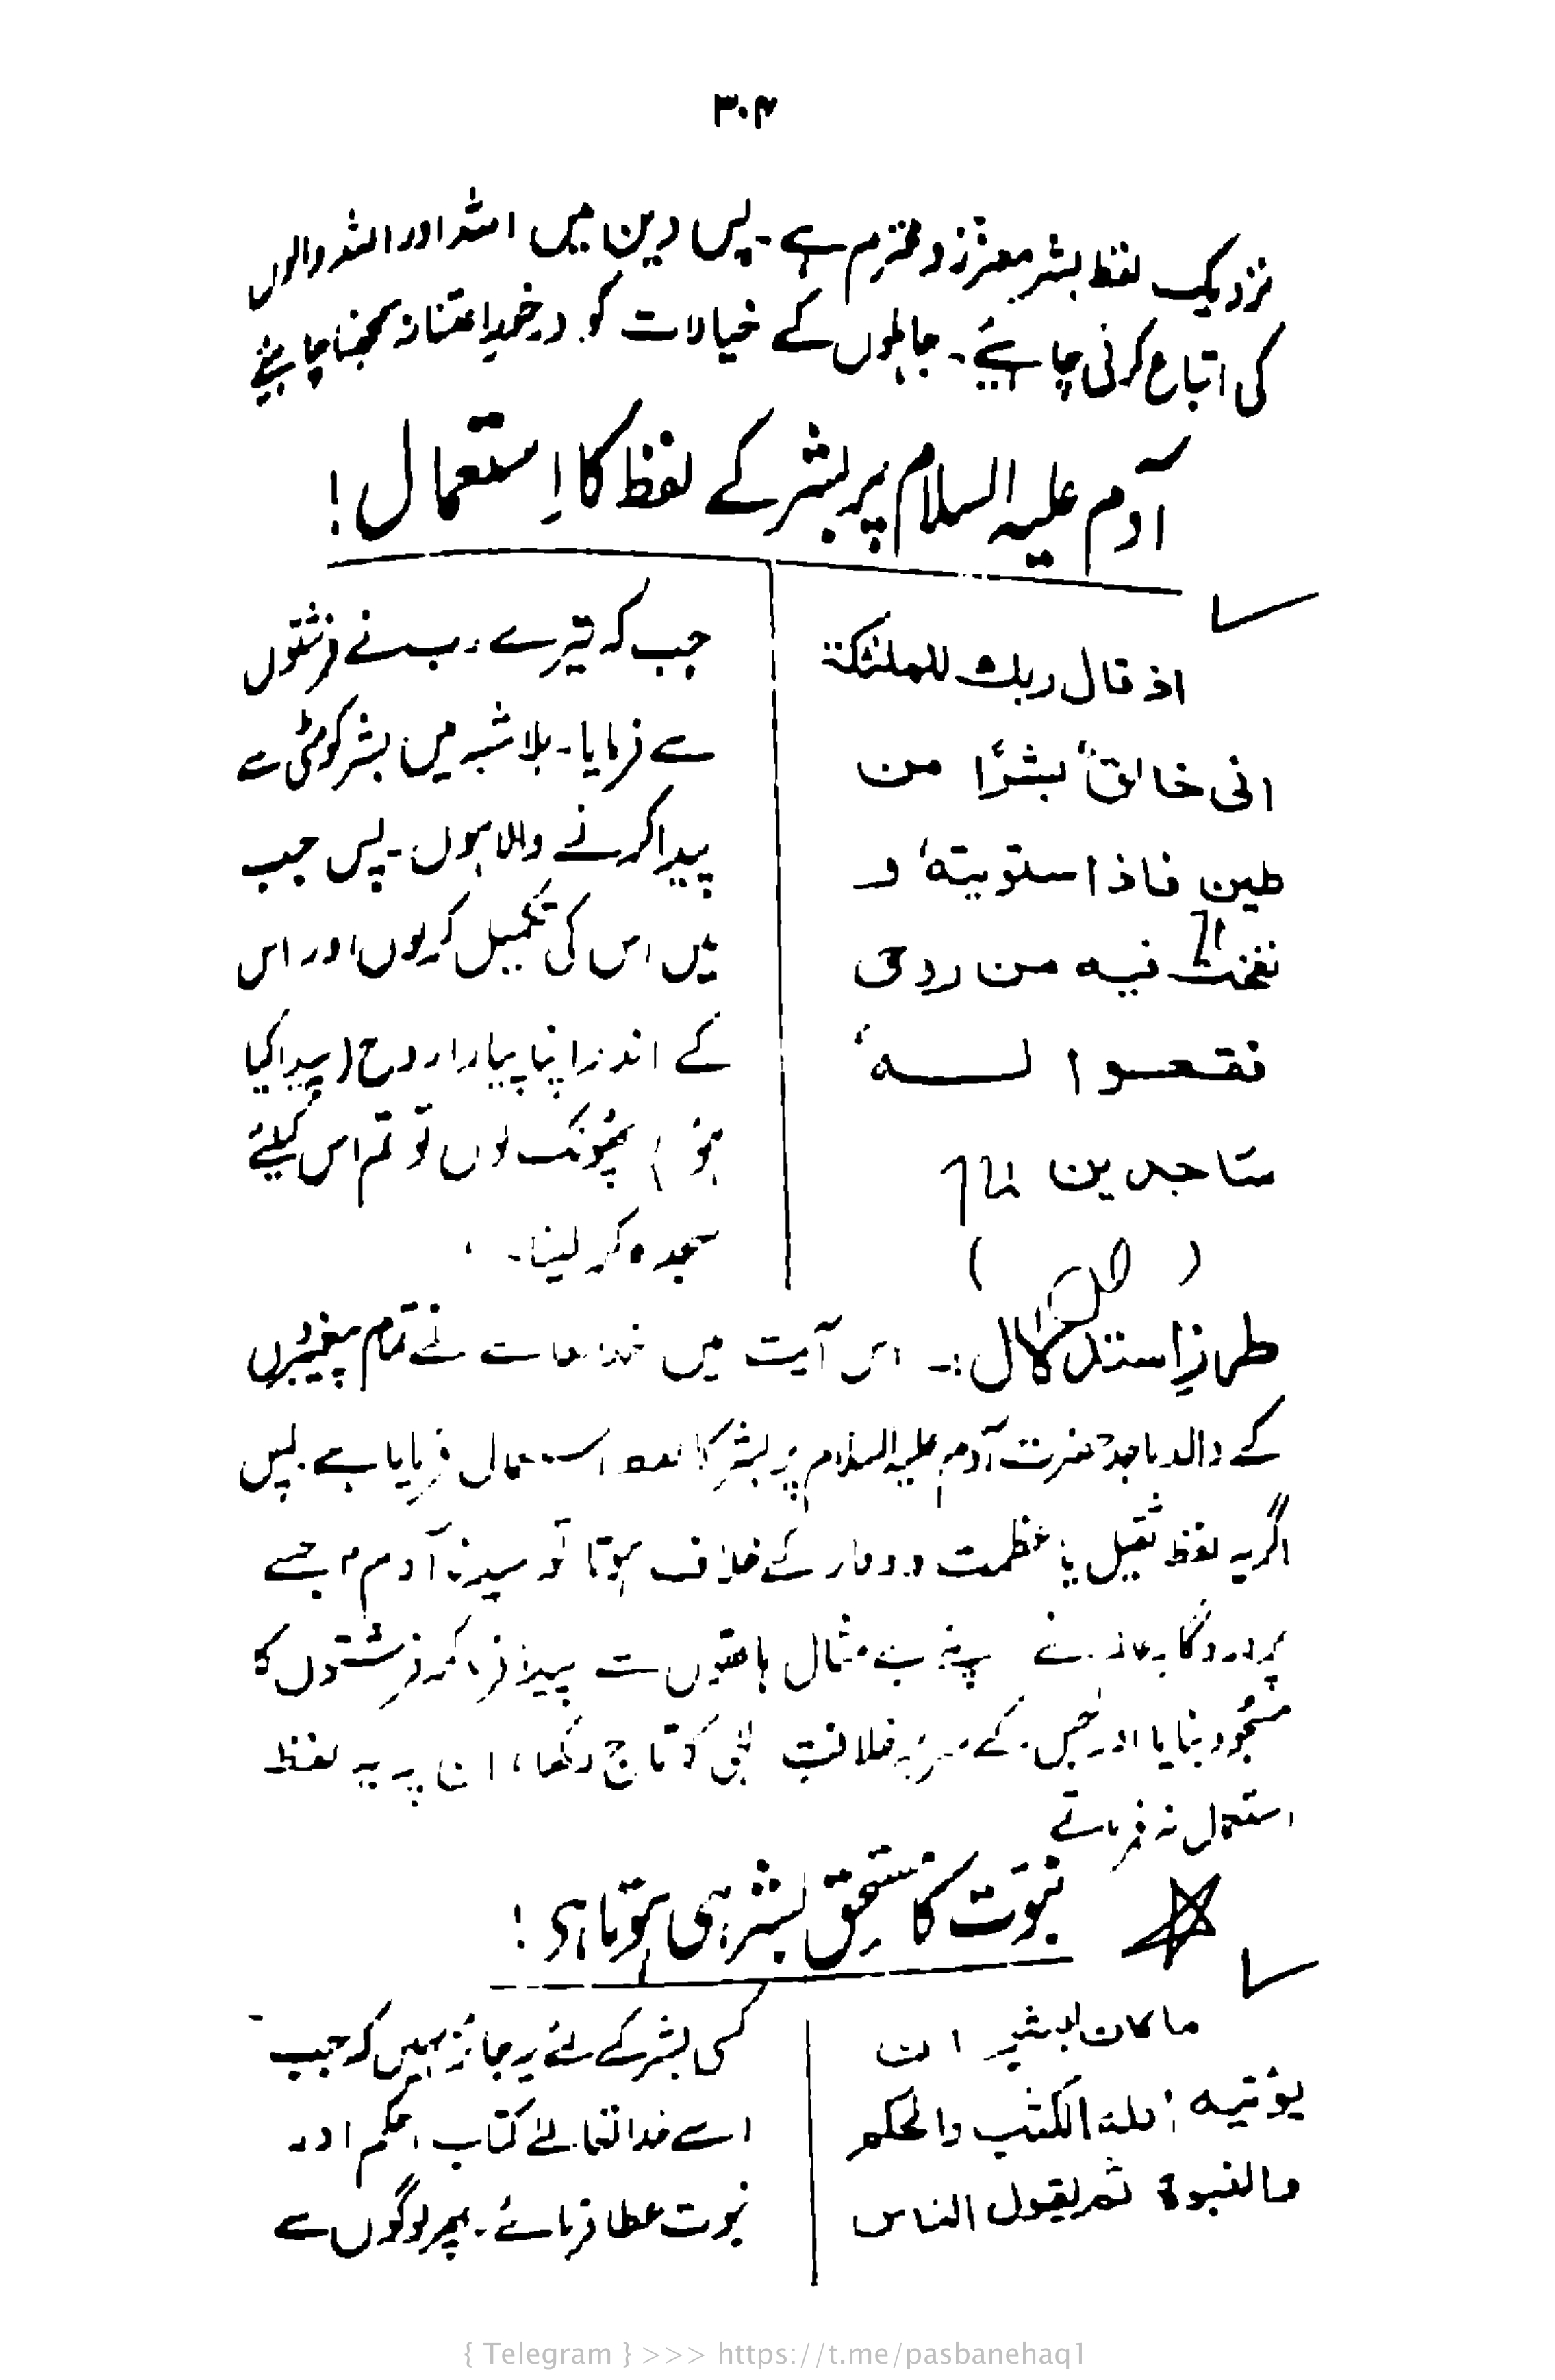 ۳۰۴
نزدیک لفظ بشر معزز و محترم ہے۔ پس دین میں اللہ اور اللہ والوں
کی اتباع کرنی چاہیئے۔ جاہلوں کے خیالات کو درخورِ اعتنا نہ سمجھنا چاہیئے
آدم علیہ السلام پر بشر کے لفظ کا اِستعمال!
اذ قال ربك للملئكة
انی خالقٌ بشرًا من
طین فاذا ستویتهٗ و
نفخت فیه من روحی
فقعوا لهٗ
ساجدین
(ص)
جب کہ تیرے رب نے فرشتوں
سے فرمایا۔ بلا شبہ میں بشر کو مٹی سے
پیدا کرنے والا ہوں۔ پس جب
میں اس کی تکمیل کر لوں اور اس
کے اندر اپنا پیارا روح (پیدا کیا
ہوَا) پھونک لوں تو تم اس کیلئے
سجدہ کر لینا۔
طرزِ استدلال:۔ اس آیت میں خدا نے تمام پیغمبروں
کے والد ماجد حضرت آدم علیہ السلام پر بشر کا لفظ استعمال فرمایا ہے۔ پس
اگر یہ لفظ ثقیل یا عظمت و وقار کے خلاف ہوتا تو سیدنا آدمؑ جسے
پروردگار عالم نے اپنے بے مثال ہاتھوں سے پیدا فرما کر فرشتوں کا
مسجود بنایا اور جس کے سر پر خلافت الٰہی کا تاج رکھا، ان پر یہ لفظ
استعمال نہ فرماتے
نبوّت کا مستحق بشر ہی ہوتا ہی!
ما کان لبشرٍ ان
یؤتیه الله الکتٰب والحکم
والنبوة ثم یقول الناس
کسی بشر کے لئے یہ جائز نہیں کہ جب
اسے خدا تعالےٰ کتاب، حکم اور
نبوت عطا فرمائے۔ پھر لوگوں سے
{ Telegram } >>> https://t.me/pasbanehaq1